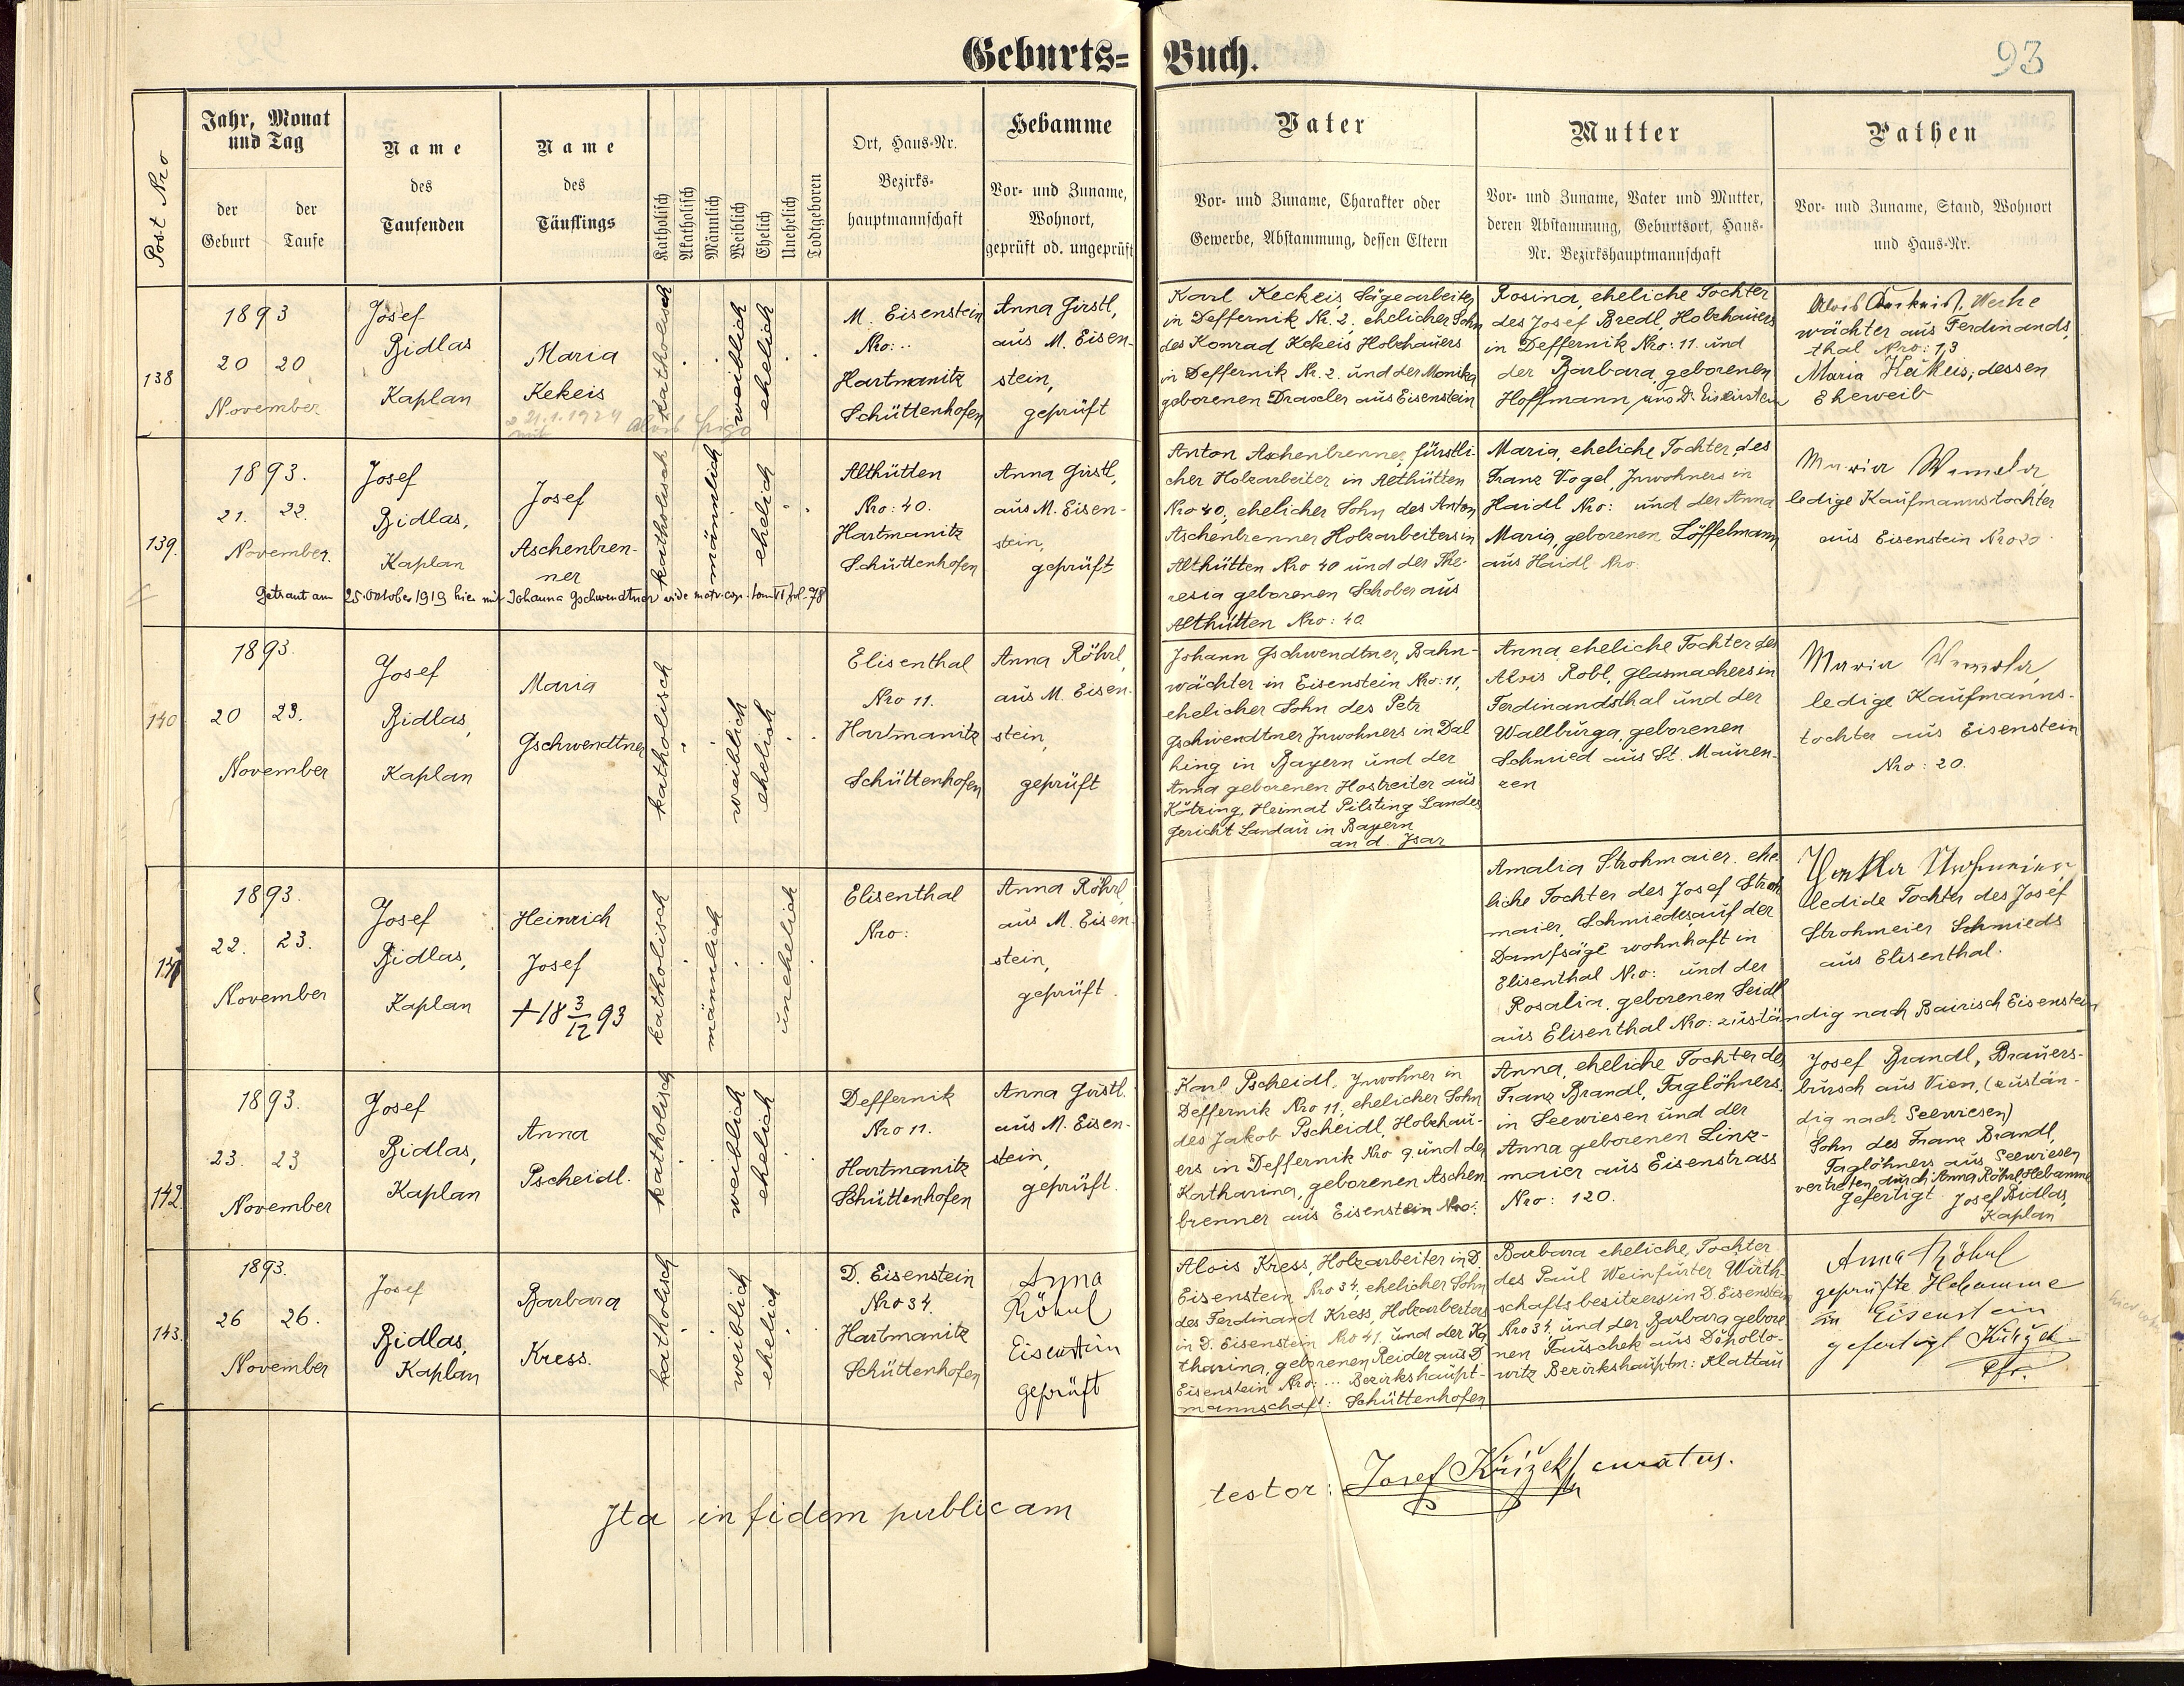 Geburts= Buch.
93
Post Nro
Jahr, Monat und Tag
der Geburt
der Taufe
Name des Taufenden
Name des Täuflings
Katholisch
Akatholisch
Männlich
Weiblich
Ehelich
Unehelich
Todtgeboren
Ort, Haus-Nr.
Bezirks-
hauptmannschaft
Hebamme
Vor- und Zuname,
Wohnort,
geprüft od. ungeprüft
Vater
Vor- und Zuname, Charakter oder
Gewerbe, Abstammung, dessen Eltern
Mutter
Vor- und Zuname, Vater und Mutter,
deren Abstammung, Geburtsort, Haus-
Nr. Bezirkshauptmannschaft
Pathen
Vor- und Zuname, Stand, Wohnort
und Haus-Nr.
138
1893
20 20
November
Josef
Bidlas
Kaplan
Maria
Kekeis
21.1.1924
mit
katholisch
weiblich
ehelich
M. Eisenstein
Nro: ..
Hartmanitz
Schüttenhofen
Anna Girstl,
aus M. Eisen-
stein,
geprüft
Karl Keckeis, Sägearbeiter
in Deffernik Nr. 2, ehelicher Sohn
des Konrad Kekeis Holzhauers
in Deffernik Nr. 2. und der Monika
geborenen Draxler aus Eisenstein
Rosina, eheliche Tochter
des Josef Bredl, Holzhauers
in Deffernik Nro: 11. und
der Barbara, geborenen
Hoffmann aus D. Eisenstein
wächter aus Ferdinands
thal Nro: 13
Maria Kekeis, dessen
Eheweib
139.
1893.
21. 22.
November.
Josef
Bidlas,
Kaplan
Josef
Aschenbren-
ner
Getraut am 25. Oktober 1919 hier mit Johanna Gschwendtner vide matr. cop. tom VI fol. 78
katholisch
männlich
ehelich
Althütten
Nro: 40.
Hartmanitz
Schüttenhofen
Anna Girstl,
aus M. Eisen-
stein,
geprüft
Anton Aschenbrenner, fürstli-
cher Holzarbeiter in Althütten
Nro 40, ehelicher Sohn des Anton
Aschenbrenner Holzarbeiters in
Althütten Nro 40 und der The-
resia geborenen Schober aus
Althütten Nro: 40.
Maria, eheliche Tochter des
Franz Vogel, Inwohners in
Haidl Nro: und der Anna
Maria, geborenen Löffelmann
aus Haidl Nro.
Maria
ledige Kaufmannstochter
aus Eisenstein Nro 20.
140
1893.
20 23.
November
Josef
Bidlas,
Kaplan
Maria
Gschwendtner
katholisch
weiblich
ehelich
Elisenthal
Nro 11.
Hartmanitz
Schüttenhofen
Anna Röhrl,
aus M. Eisen-
stein,
geprüft
Johann Gschwendtner, Bahn-
wächter in Eisenstein Nro: 11,
ehelicher Sohn des Petr
Gschwendtner Inwohners in Dal
king in Bayern und der
Anna geborenen Hostreiter aus
Kötzing, Heimat Pilsting Landes
gericht Landau in Bayern
an d. Isar
Anna, eheliche Tochter des
Alois Robl, Glasmachers in
Ferdinandsthal und der
Wallburga, geborenen
Schmied aus St. Mauren-
zen
Maria
ledige Kaufmanns-
tochter aus Eisenstein
Nro: 20.
141
1893.
22. 23.
November
Josef
Bidlas,
Kaplan
Heinrich
Josef
+ 18 3/12 93
katholisch
männlich
unehelich
Elisenthal
Nro:
Anna Röhrl,
aus M. Eisen-
stein,
geprüft.
Amalia Strohmaier, ehe-
liche Tochter des Josef Stroh
maier, Schmiedes auf der
Dampfsäge wohnhaft in
Elisenthal Nro: und der
Rosalia, geborenen Seidl
aus Elisenthal Nro: zuständig nach Bairisch Eisenstein
ledide Tochter des Josef
Strohmeier Schmieds
aus Elisenthal.
142.
1893.
23. 23
November
Josef
Bidlas,
Kaplan
Anna
Pscheidl.
katholisch
weiblich
ehelich
Deffernik
Nro 11.
Hartmanitz
Schüttenhofen
Anna Girstl.
aus M. Eisen-
stein,
geprüft.
Karl Pscheidl, Inwohner in
Deffernik Nro 11, ehelicher Sohn
des Jakob Pscheidl, Holzhau-
ers in Deffernik Nro 9. und der
Katharina, geborenen Aschen
brenner aus Eisenstein Nro:
Anna, eheliche Tochter des
Franz Brandl, Taglöhners
in Seewiesen und der
Anna geborenen Linz-
maier aus Eisenstrass
Nro: 120.
Josef Brandl, Brauers-
bursch aus Vien, (zustän-
dig nach Seewiesen)
Sohn des Franz Brandl,
Taglöhners aus Seewiesen
vertreten durch Anna Röhrl Hebamme
gefertigt Josef Bidlas,
Kaplan
143.
1893.
26 26.
November
Josef
Bidlas,
Kaplan
Barbara
Kress.
katholisch
weiblich
ehelich
D. Eisenstein
Nro 34.
Hartmanitz
Schüttenhofen
Anna
Röhrl
Eisenstein
geprüft
Alois Kress, Holzarbeiter in D.
Eisenstein Nro 34, ehelicher Sohn
des Ferdinand Kress, Holzarbeiters
in D. Eisenstein Nro 41. und der Ka
tharina, geborenen Reider aus D.
Eisenstein Nro: ... Bezirkshaupt-
mannschaft: Schüttenhofen
Barbara eheliche, Tochter
des Paul Weinfurter Wirth-
schaftsbesitzers in D. Eisenstein
Nro 34. und der Barbara gebore
nen Tauschek aus
witz Bezirkshauptm: Klattau
Anna Röhrl
geprüfte Hebamme
in Eisenstein
gefertigt Křížek
Pfr.
Ita in fidem publicam
testor: Josef Křížek curatus.